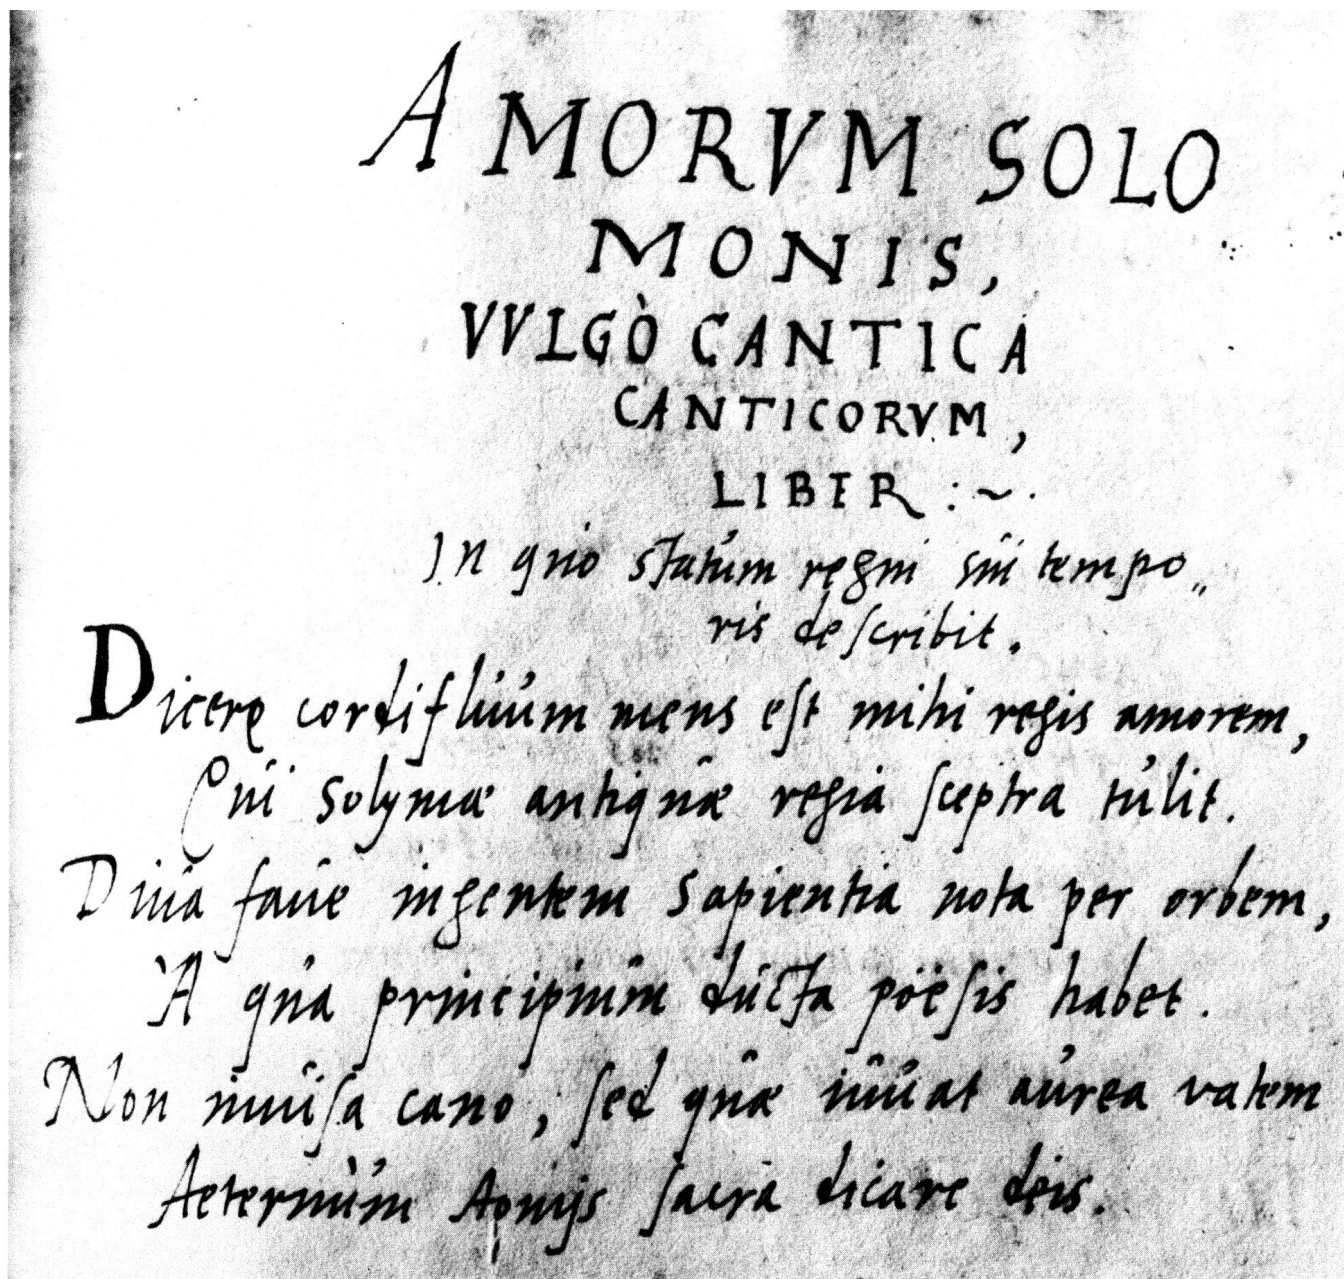 AMORVM SOLO
MONIS,
VVLGÒ CANTICA
CANTICORVM,
LIBER :~.
In quo statum regni sui tempo„
ris deſcribit.
Dicere cordifluum mens eſt mihi regis amorem,
Qui Solymæ antiquæ regia ſceptra tulit.
Diua faue ingentem Sapientia nota per orbem,
A qua principium ducta pöeſis habet.
Non inuiſa cano, ſed quæ iuuat aurea vatem
Aeternùm Aonijs ſacra dicare deis.